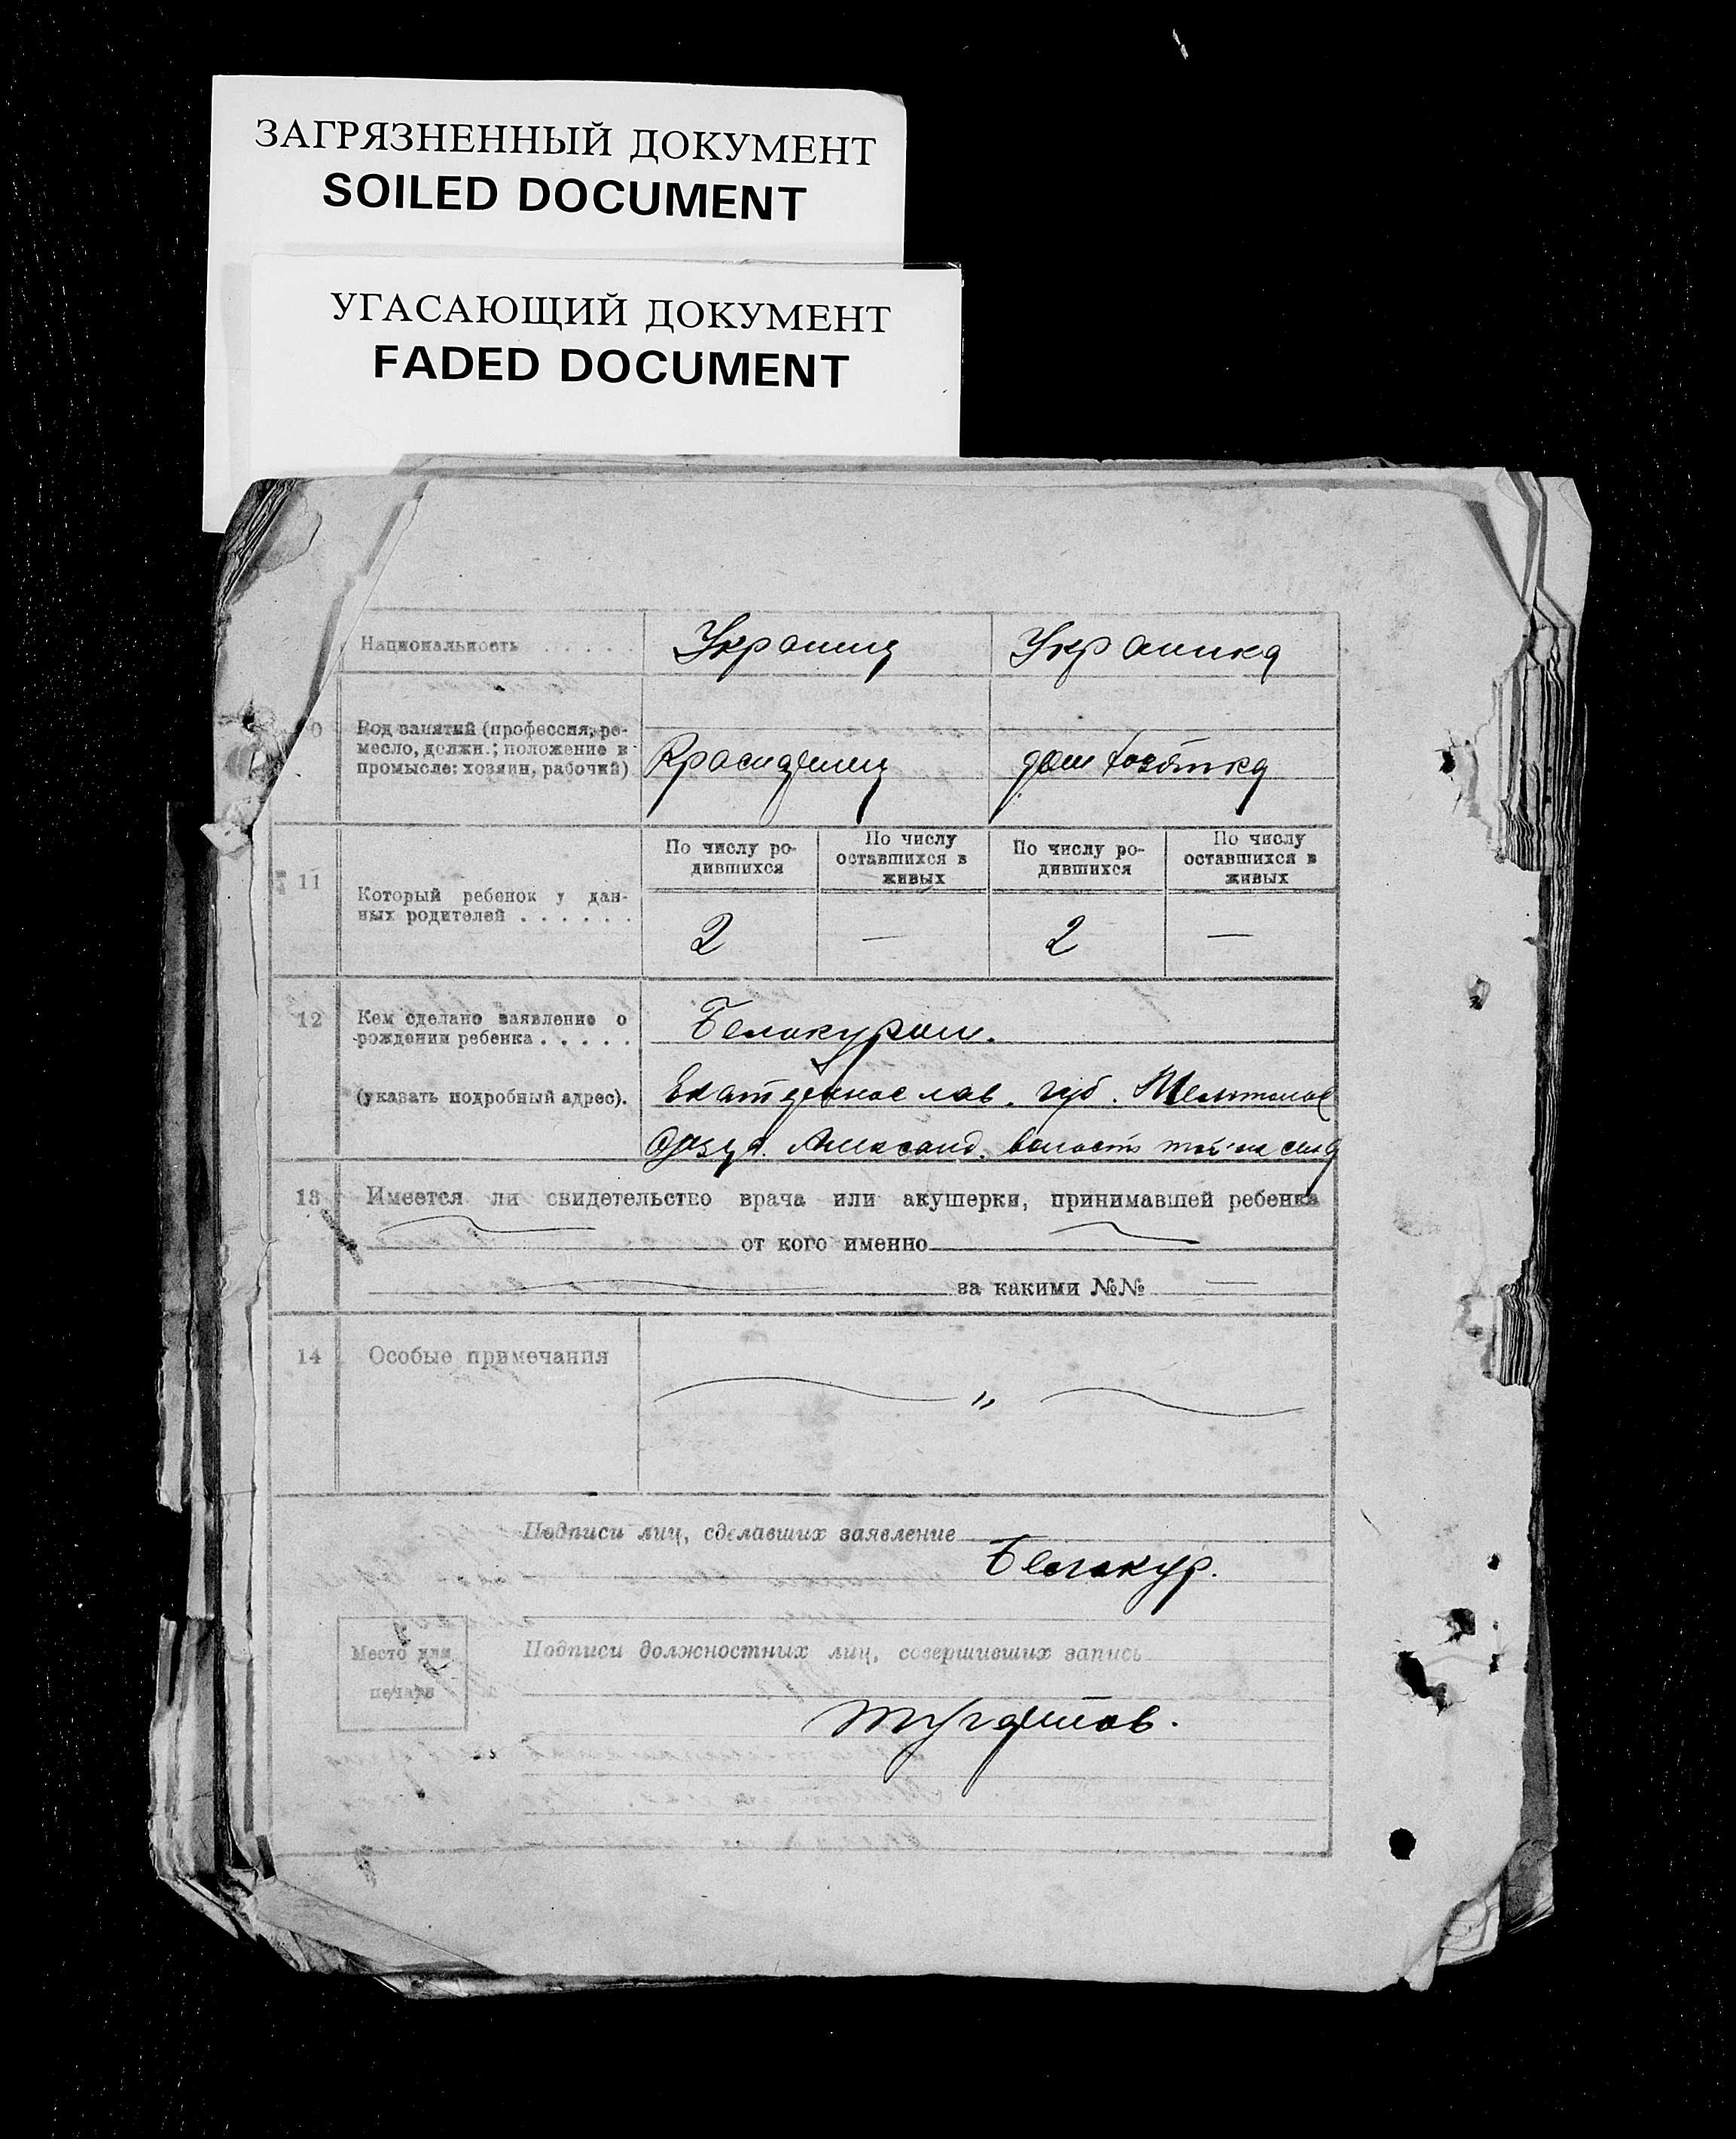 ЗАГРЯЗНЕННЫЙ ДОКУМЕНТ
SOILED DOCUMENT
УГАСАЮЩИЙ ДОКУМЕНТ
FADED DOCUMENT
Национальность . . . . . Украинец Украинка
0 Род занятий (профессия, ре-
месло, должн.; положение в
промысле: хозяин, рабочий) дом хозяйка
По числу ро-
дившихся
По числу
оставшихся в
живых
По числу ро-
дившихся
По числу
оставшихся в
живых
11 Который ребенок у дан-
ных родителей . . . . . . 2 — 2 —
12 Кем сделано заявление о
рождении ребенка . . . . . Белокуром.
(указать подробный адрес). Екатеринослав. губ.
Александ. волость
13 Имеется ли свидетельство врача или акушерки, принимавшей ребенка
от кого именно
за какими №№ —
14 Особые примечания — " —
Подписи лиц, сделавших заявление
Белокур.
Место для
печати
Подписи должностных лиц, совершивших запись